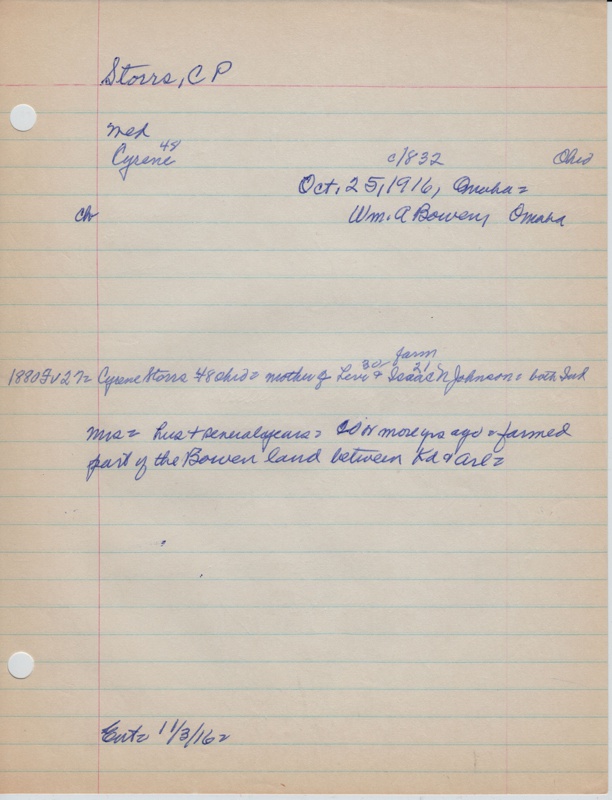 Storrs, C P
med
Cyrene 48 c1832 Ohio
Oct, 25, 1916, Omaha =
ch Wm. A Bowen, Omaha
30 farm 21
1880 Fv 27 = Cyrene Storrs 48 Ohio = mother of Levi & Isaac N Johnson = both Ind
Mrs = here + several years = 20 or more yrs ago = farmed
part of the Bowen land between Kd & Arl =
Ent = 11/3/16 =